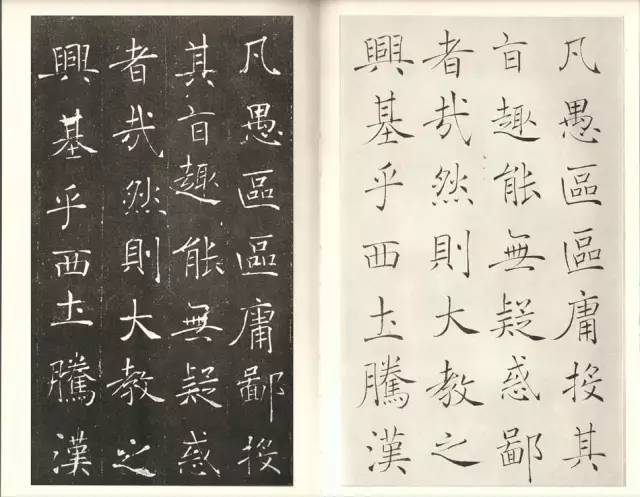 凡愚區區庸投其
旨趣能無疑惑鄙
者哉然則大教之
興基乎西土騰漢
凡愚區區庸鄙投
其旨趣能無疑惑
者哉然則大教之
興基乎西土騰漢